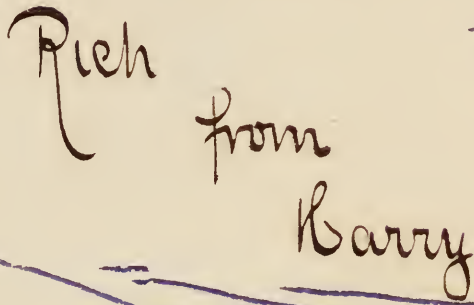 Rich
from
Harry